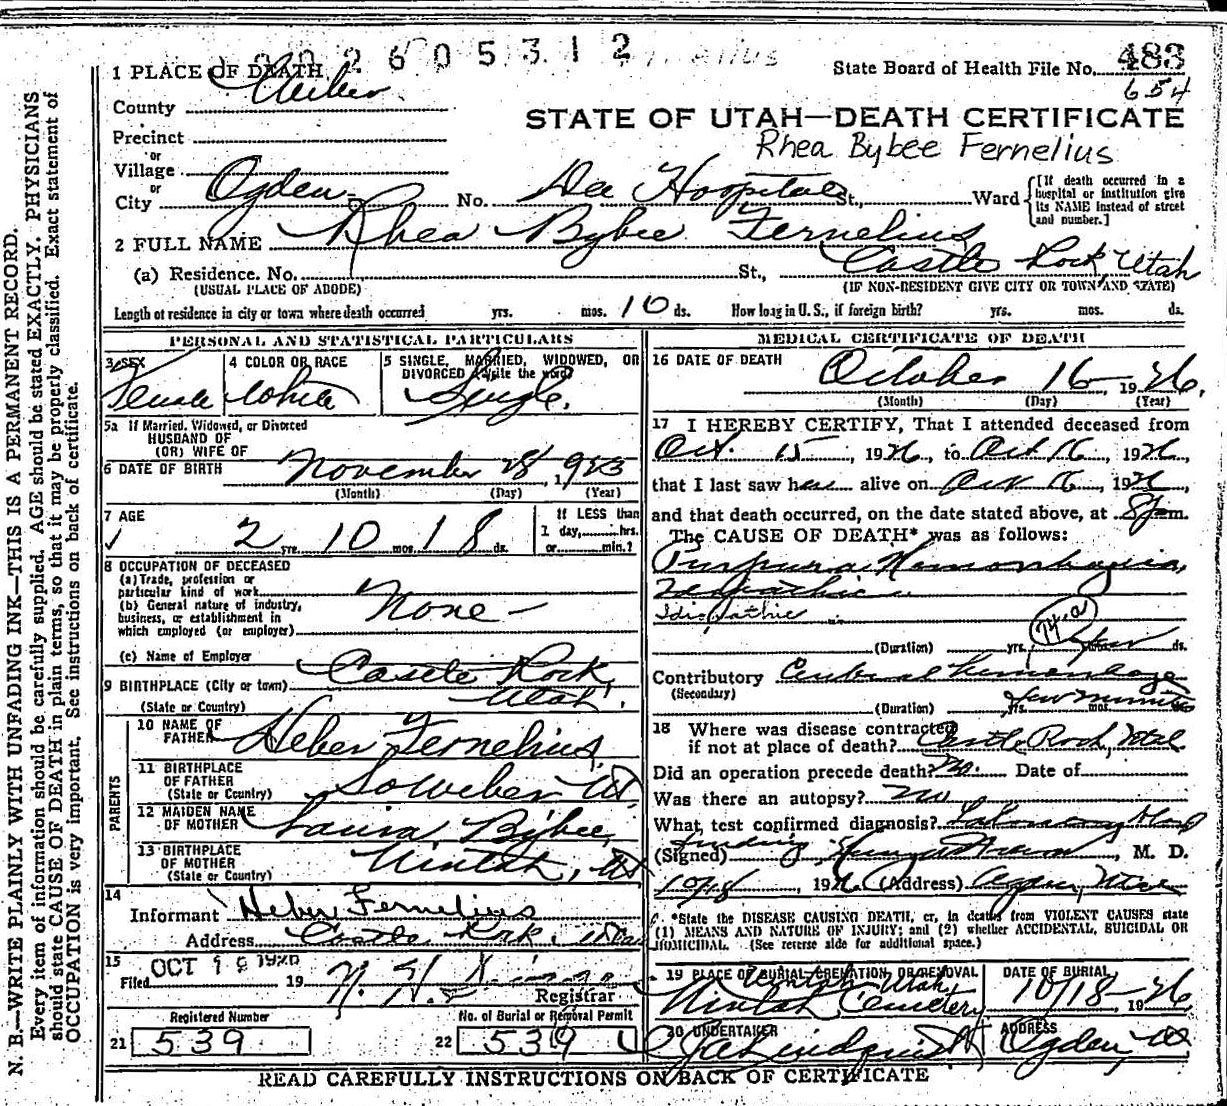 N. B.—WRITE PLAINLY WITH UNFADING INK—THIS IS A PERMANENT RECORD.
Every item of information should be carefully supplied. AGE should be stated EXACTLY. PHYSICIANS
should state CAUSE OF DEATH in plain terms, so that it may be properly classified. Exact statement of
OCCUPATION is very important. See instructions on back of certificate.
2 6 0 5 3 1 2
1 PLACE OF DEATH
State Board of Health File No. 483
654
County Weber
STATE OF UTAH—DEATH CERTIFICATE
Precinct
Rhea Bybee Fernelius
or
Village
or
City Ogden No. Dee Hospital St., Ward
[If death occurred in a
hospital or institution give
its NAME instead of street
and number.]
2 FULL NAME Rhea Bybee Fernelius
(a) Residence. No. St., Castle Rock, Utah
(USUAL PLACE OF ABODE) (IF NON-RESIDENT GIVE CITY OR TOWN AND STATE)
Length of residence in city or town where death occurred yrs. mos. 10 ds. How long in U. S., if foreign birth? yrs. mos. ds.
PERSONAL AND STATISTICAL PARTICULARS
3 SEX 4 COLOR OR RACE 5 SINGLE, MARRIED, WIDOWED, OR
DIVORCED (write the word)
Female White Single.
5a If Married, Widowed, or Divorced
HUSBAND OF
(OR) WIFE OF
6 DATE OF BIRTH November 28, 1923
(Month) (Day) (Year)
7 AGE If LESS than
1 day, hrs.
2 yrs. 10 mos. 18 ds. or min.?
8 OCCUPATION OF DECEASED
(a) Trade, profession or
particular kind of work
(b) General nature of industry,
business, or establishment in
which employed (or employer)
None
(c) Name of Employer
9 BIRTHPLACE (City or town) Castle Rock,
(State or Country) Utah.
PARENTS
10 NAME OF
FATHER Heber Fernelius,
11 BIRTHPLACE
OF FATHER
(State or Country) So Weber Ut
12 MAIDEN NAME
OF MOTHER Laura Bybee,
13 BIRTHPLACE
OF MOTHER
(State or Country) Uintah, Ut
14
Informant Heber Fernelius
Address Castle Rock, Utah
15
Filed OCT 19 1926 19
Registrar
Registered Number No. of Burial or Removal Permit
21 539 22 539
MEDICAL CERTIFICATE OF DEATH
16 DATE OF DEATH
October 16 1926.
(Month) (Day) (Year)
17 I HEREBY CERTIFY, That I attended deceased from
Oct. 15, 1926, to Oct 16, 1926,
that I last saw her alive on Oct 16, 1926,
and that death occurred, on the date stated above, at 8 m.
The CAUSE OF DEATH* was as follows:
Purpura Hemorrhagica,
Idiopathic
Idiopathic
(Duration) yrs. mos. ds.
Contributory Cerebral hemorrhage
(Secondary)
(Duration) few minutes
18 Where was disease contracted
if not at place of death? Castle Rock, Utah
Did an operation precede death? No. Date of
Was there an autopsy? No
What test confirmed diagnosis? Laboratory blood
finding
(Signed) , M. D.
10/18, 1926 (Address) Ogden, Utah
*State the DISEASE CAUSING DEATH, or, in deaths from VIOLENT CAUSES state
(1) MEANS AND NATURE OF INJURY; and (2) whether ACCIDENTAL, SUICIDAL OR
HOMICIDAL. (See reverse side for additional space.)
19 PLACE OF BURIAL, CREMATION OR REMOVAL DATE OF BURIAL
Uintah, Utah,
Uintah Cemetery 10/18 1926
20 UNDERTAKER ADDRESS
Lindquist Ogden, Ut
READ CAREFULLY INSTRUCTIONS ON BACK OF CERTIFICATE